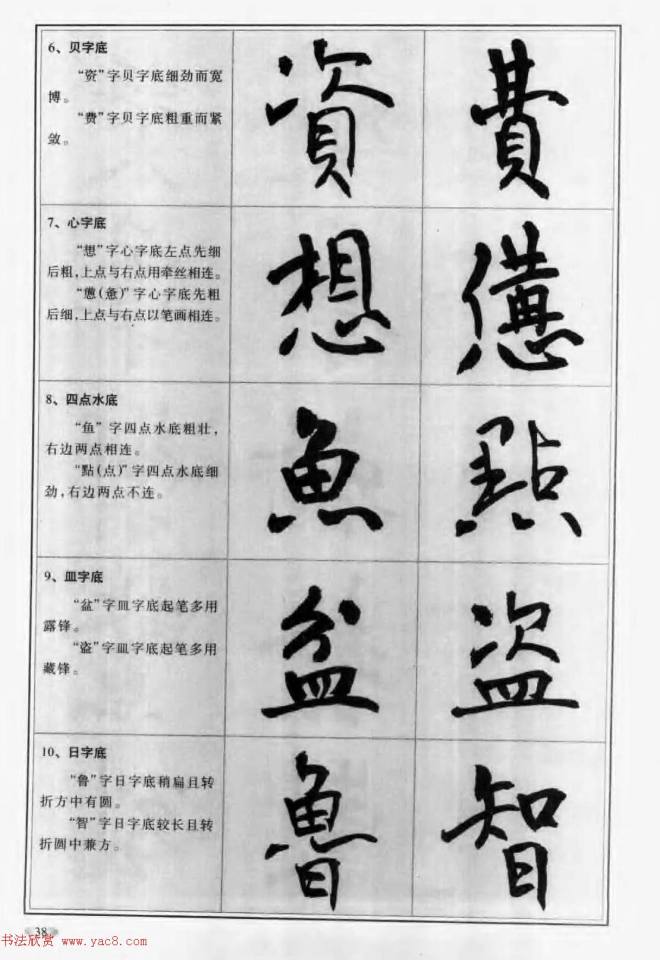 6、贝字底
“资”字贝字底细劲而宽
博。
“费”字贝字底粗重而紧
敛。
資 費
7、心字底
“想”字心字底左点先细
后粗,上点与右点用牵丝相连。
“憊(惫)”字心字底先粗
后细,上点与右点以笔画相连。
想 憊
8、四点水底
“鱼”字四点水底粗壮,
右边两点相连。
“點(点)”字四点水底细
劲,右边两点不连。
魚 點
9、皿字底
“盆”字皿字底起笔多用
露锋。
“盗”字皿字底起笔多用
藏锋。
盆 盗
10、日字底
“鲁”字日字底稍扁且转
折方中有圆。
“智”字日字底较长且转
折圆中兼方。
魯 智
38
书法欣赏 www.yac8.com